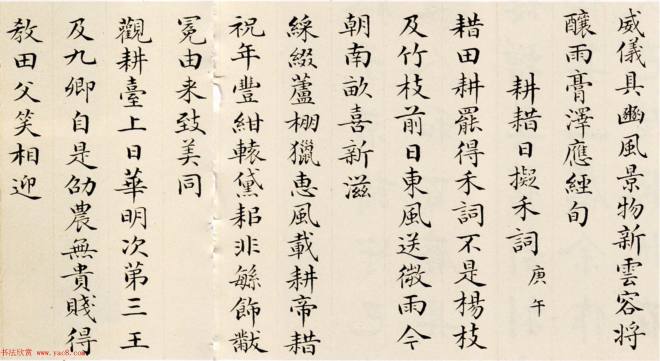 威儀具豳風景物新雲容將
釀雨膏澤應經旬
耕耤日擬禾詞 庚午
耤田耕罷得禾詞不是楊枝
及竹枝前日東風送微雨今
朝南畝喜新滋
綵綴蘆棚獵惠風載耕帝耤
祝年豐紺轅黛耜非緐飾黻
冕由来致美同
觀耕臺上日華明次第三王
及九卿自是劭農無貴賤得
教田父笑相迎
书法欣赏
www.yac8.com